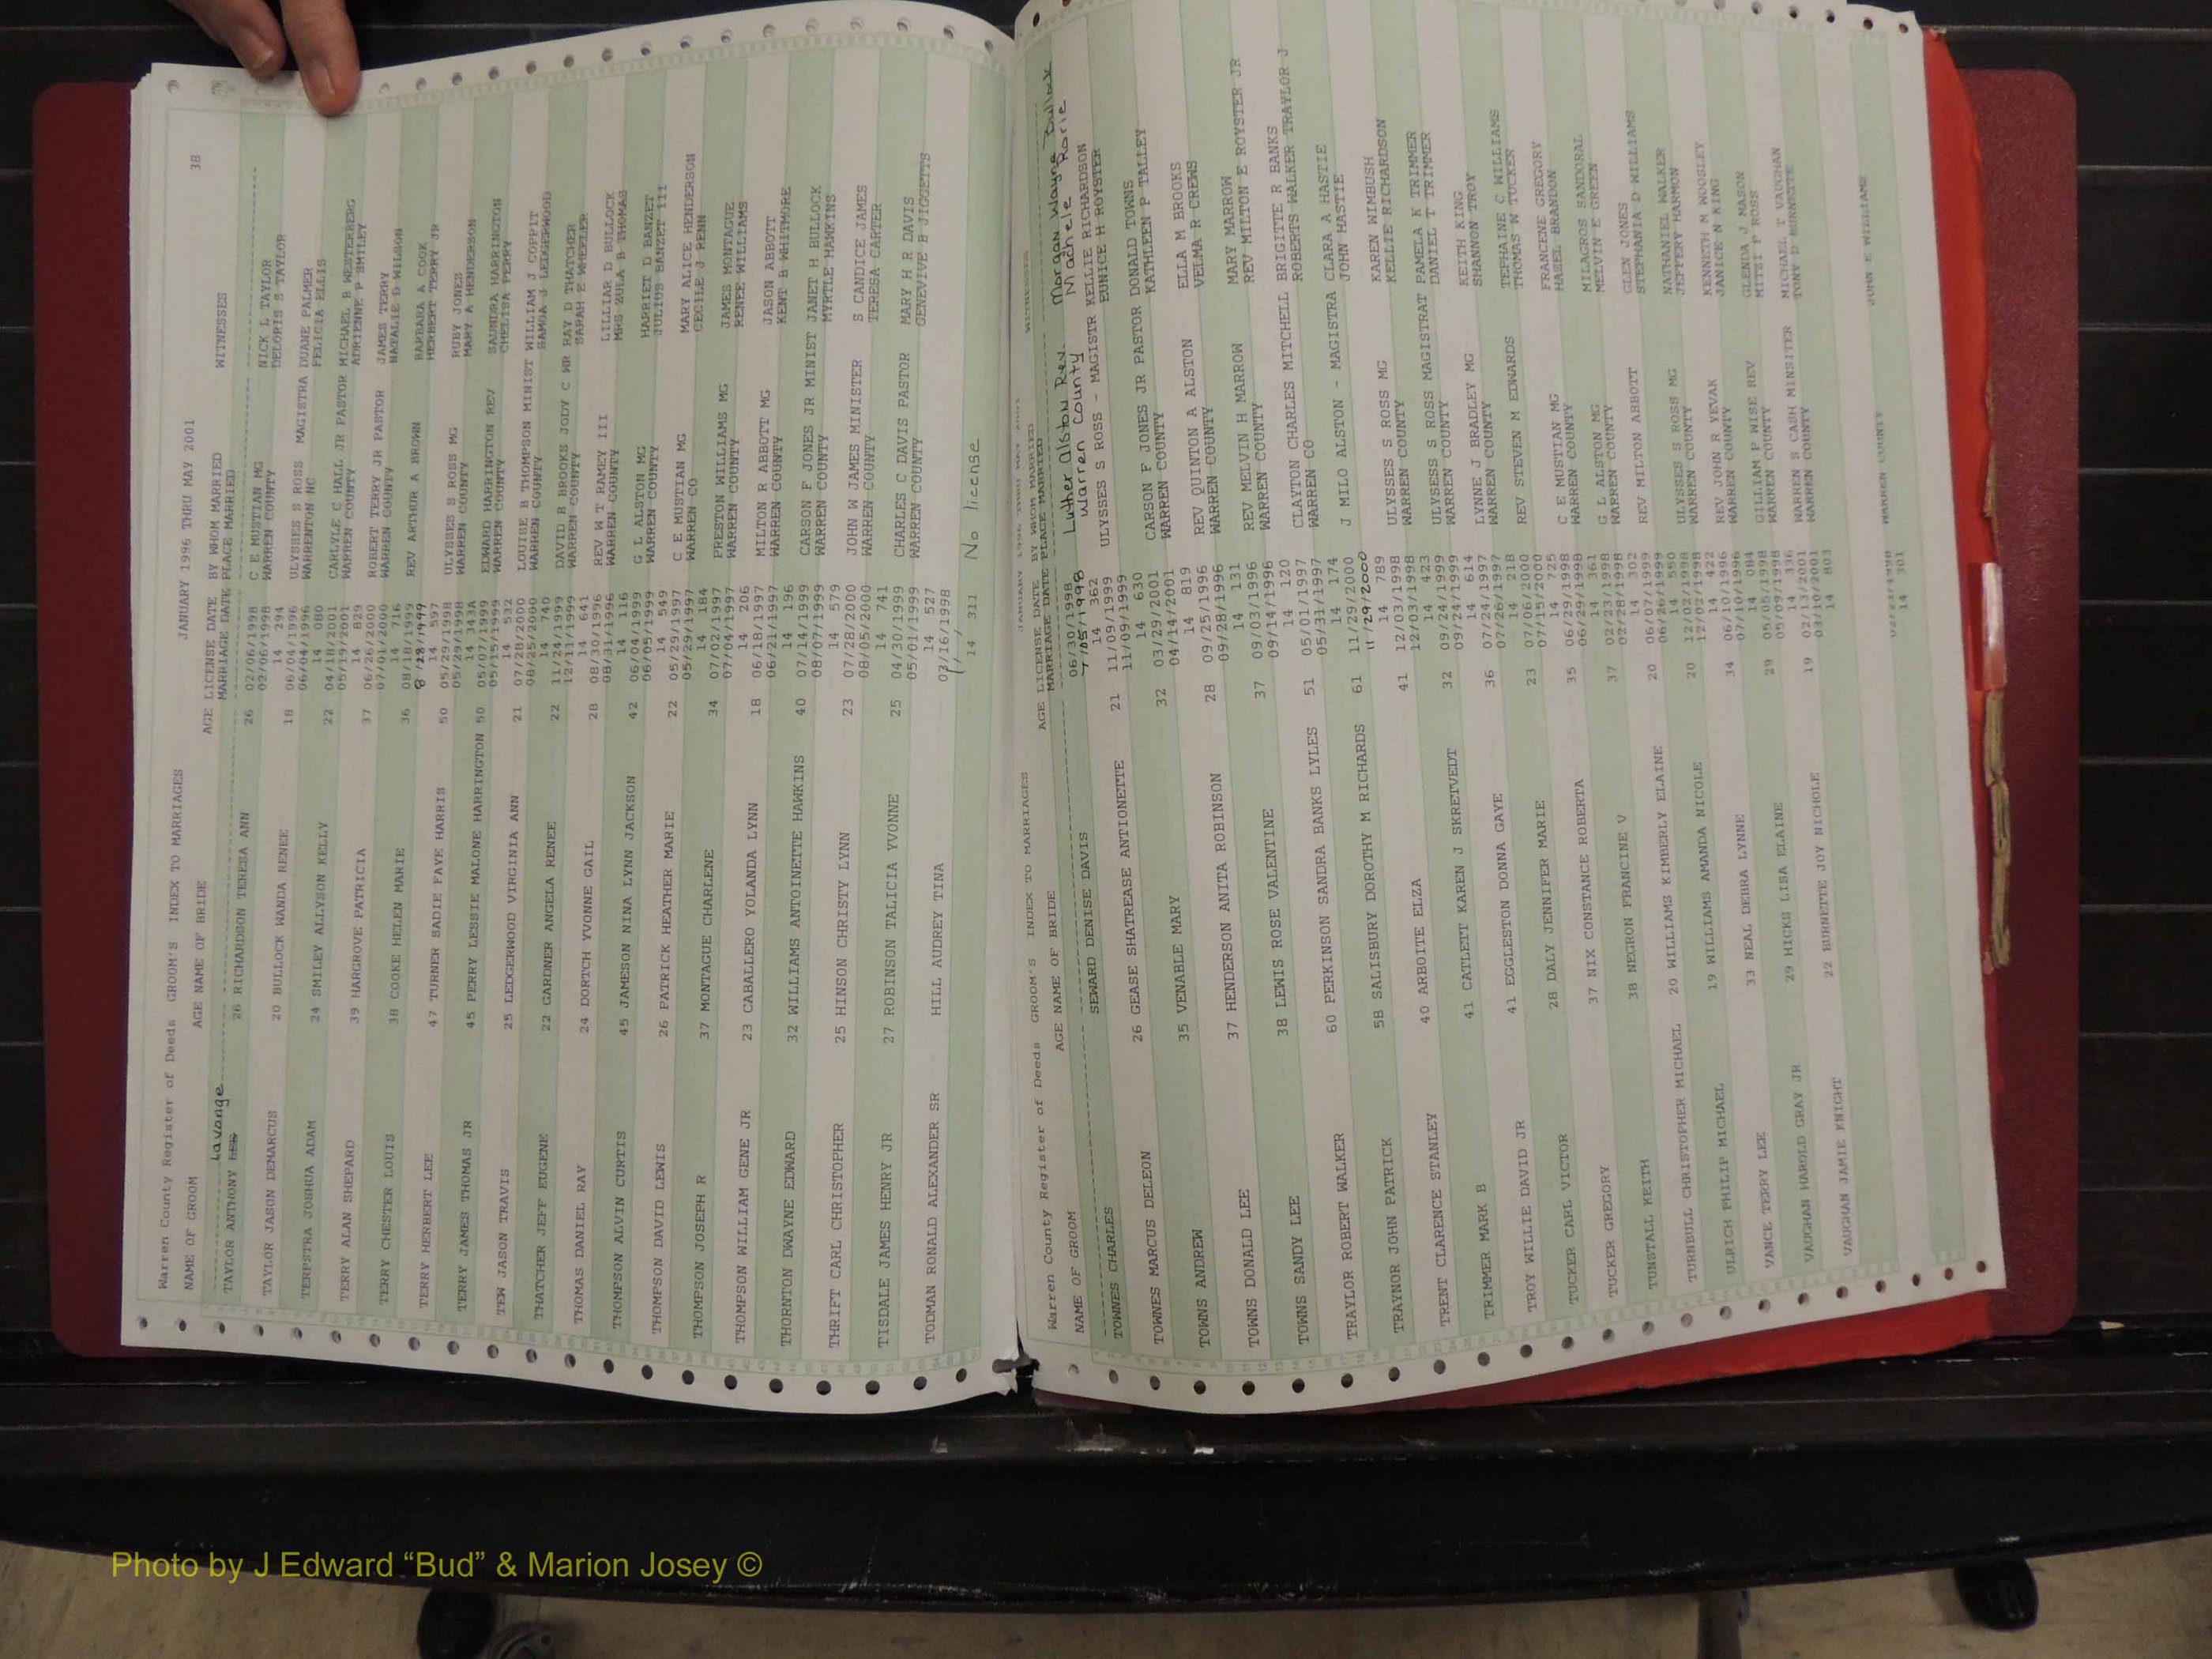 Warren County Register of Deeds GROOM'S INDEX TO MARRIAGES JANUARY 1996 THRU MAY 2001 38
NAME OF GROOM AGE NAME OF BRIDE AGE LICENSE DATE BY WHOM MARRIED WITNESSES
MARRIAGE DATE PLACE MARRIED
Lavange
TAYLOR ANTHONY LEE 26 RICHARDSON TERESA ANN 26 02/06/1998 C E MUSTIAN MG NICK L TAYLOR
02/06/1998 WARREN COUNTY DELORIS S TAYLOR
14 294
TAYLOR JASON DEMARCUS 20 BULLOCK WANDA RENEE 18 06/04/1996 ULYSSES S ROSS MAGISTRA DUANE PALMER
06/04/1996 WARRENTON NC FELICIA ELLIS
14 080
TERPSTRA JOSHUA ADAM 24 SMILEY ALLYSON KELLY 22 04/18/2001 CARLYLE C HALL JR PASTOR MICHAEL B WESTERBERG
05/19/2001 WARREN COUNTY ADRIENNE P SMILEY
14 829
TERRY ALAN SHEPARD 39 HARGROVE PATRICIA 37 06/26/2000 ROBERT TERRY JR PASTOR JAMES TERRY
07/01/2000 WARREN COUNTY NATALIE D WILSON
14 716
TERRY CHESTER LOUIS 38 COOKE HELEN MARIE 36 08/18/1999 REV ARTHUR A BROWN BARBARA A COOK
8/28/1999 HERBERT TERRY JR
14 597
TERRY HERBERT LEE 47 TURNER SADIE FAYE HARRIS 50 05/29/1998 ULYSSES S ROSS MG RUBY JONES
05/29/1998 WARREN COUNTY MARY A HENDERSON
14 343A
TERRY JAMES THOMAS JR 45 PERRY LESSIE MALONE HARRINGTON 50 05/07/1999 EDWARD HARRINGTON REV SAUNDRA HARRINGTON
05/15/1999 WARREN COUNTY CHELISA PERRY
14 532
TEW JASON TRAVIS 25 LEDGERWOOD VIRGINIA ANN 21 07/28/2000 LOUISE B THOMPSON MINIST WILLIAM J COPPIT
08/25/2000 WARREN COUNTY SAMUA J LEDGERWOOD
14 740
THATCHER JEFF EUGENE 22 GARDNER ANGELA RENEE 22 11/24/1999 DAVID B BROOKS JODY C WR RAY D THATCHER
12/11/1999 WARREN COUNTY SARAH E WHEELER
14 641
THOMAS DANIEL RAY 24 DORTCH YVONNE GAIL 28 08/30/1996 REV W T RAMEY III LILLIAR D BULLOCK
08/31/1996 WARREN COUNTY MRS ZULA B THOMAS
14 116
THOMPSON ALVIN CURTIS 45 JAMESON NINA LYNN JACKSON 42 06/04/1999 G L ALSTON MG HARRIET D BANZET
06/05/1999 WARREN COUNTY JULIUS BANZET III
14 549
THOMPSON DAVID LEWIS 26 PATRICK HEATHER MARIE 22 05/29/1997 C E MUSTIAN MG MARY ALICE HENDERSON
05/29/1997 WARREN CO CECILE J RENN
14 184
THOMPSON JOSEPH R 37 MONTAGUE CHARLENE 34 07/02/1997 PRESTON WILLIAMS MG JAMES MONTAGUE
07/04/1997 WARREN COUNTY RENEE WILLIAMS
14 206
THOMPSON WILLIAM GENE JR 23 CABALLERO YOLANDA LYNN 18 06/18/1997 MILTON R ABBOTT MG JASON ABBOTT
06/21/1997 WARREN COUNTY KENT B WHITMORE
14 196
THORNTON DWAYNE EDWARD 32 WILLIAMS ANTOINETTE HAWKINS 40 07/14/1999 CARSON F JONES JR MINIST JANET H BULLOCK
08/07/1999 WARREN COUNTY MYRTLE HAWKINS
14 579
THRIFT CARL CHRISTOPHER 25 HINSON CHRISTY LYNN 23 07/28/2000 JOHN W JAMES MINISTER S CANDICE JAMES
08/05/2000 WARREN COUNTY TERESA CARTER
14 741
TISDALE JAMES HENRY JR 27 ROBINSON TALICIA YVONNE 25 04/30/1999 CHARLES C DAVIS PASTOR MARY H R DAVIS
05/01/1999 WARREN COUNTY GENEVIVE B JIGGETTS
14 527
TODMAN RONALD ALEXANDER SR HILL AUDREY TINA 03/16/1998
/ /
14 311 No license
Warren County Register of Deeds GROOM'S INDEX TO MARRIAGES JANUARY 1996 THRU MAY 2001
NAME OF GROOM AGE NAME OF BRIDE AGE LICENSE DATE BY WHOM MARRIED WITNESSES
MARRIAGE DATE PLACE MARRIED
TOWNES CHARLES SEWARD DENISE DAVIS 06/30/1998 Luther Alston Rev. Morgan Wayne Bullock
7/05/1998 Warren County Machele Rorie
14 362
TOWNES MARCUS DELEON 26 GEASE SHATREASE ANTIONETTE 21 11/09/1999 ULYSSES S ROSS - MAGISTR KELLIE RICHARDSON
11/09/1999 EUNICE H ROYSTER
14 630
TOWNS ANDREW 35 VENABLE MARY 32 03/29/2001 CARSON F JONES JR PASTOR DONALD TOWNS
04/14/2001 WARREN COUNTY KATHLEEN P TALLEY
14 819
TOWNS DONALD LEE 37 HENDERSON ANITA ROBINSON 28 09/25/1996 REV QUINTON A ALSTON ELLA M BROOKS
09/28/1996 WARREN COUNTY VELMA R CREWS
14 131
TOWNS SANDY LEE 38 LEWIS ROSE VALENTINE 37 09/03/1996 REV MELVIN H MARROW MARY MARROW
09/14/1996 WARREN COUNTY REV MILTON E ROYSTER JR
14 120
TRAYLOR ROBERT WALKER 60 PERKINSON SANDRA BANKS LYLES 51 05/01/1997 CLAYTON CHARLES MITCHELL BRIGITTE R BANKS
05/31/1997 WARREN CO ROBERTS WALKER TRAYLOR J
14 174
TRAYNOR JOHN PATRICK 58 SALISBURY DOROTHY M RICHARDS 61 11/29/2000 J MILO ALSTON - MAGISTRA CLARA A HASTIE
11/29/2000 JOHN HASTIE
14 789
TRENT CLARENCE STANLEY 40 ARBOITE ELZA 41 12/03/1998 ULYSSES S ROSS MG KAREN WIMBUSH
12/03/1998 WARREN COUNTY KELLIE RICHARDSON
14 423
TRIMMER MARK B 41 CATLETT KAREN J SKRETVEDT 32 09/24/1999 ULYSESS S ROSS MAGISTRAT PAMELA K TRIMMER
09/24/1999 WARREN COUNTY DANIEL T TRIMMER
14 614
TROY WILLIE DAVID JR 41 EGGLESTON DONNA GAYE 36 07/24/1997 LYNNE J BRADLEY MG KEITH KING
07/26/1997 WARREN COUNTY SHANNON TROY
14 218
TUCKER CARL VICTOR 28 DALY JENNIFER MARIE 23 07/06/2000 REV STEVEN M EDWARDS TEPHAINE C WILLIAMS
07/15/2000 THOMAS W TUCKER
14 725
TUCKER GREGORY 37 NIX CONSTANCE ROBERTA 35 06/29/1998 C E MUSTIAN MG FRANCENE GREGORY
06/29/1998 WARREN COUNTY HAZEL BRANDON
14 361
TUNSTALL KEITH 38 NEGRON FRANCINE V 37 02/23/1998 G L ALSTON MG MILAGROS SANDORAL
02/28/1998 WARREN COUNTY MELVIN E GREEN
14 302
TURNBULL CHRISTOPHER MICHAEL 20 WILLIAMS KIMBERLY ELAINE 20 06/07/1999 REV MILTON ABBOTT GLEN JONES
06/26/1999 STEPHANIA D WILLIAMS
14 550
ULRICH PHILIP MICHAEL 19 WILLIAMS AMANDA NICOLE 20 12/02/1998 ULYSSES S ROSS MG NATHANIEL WALKER
12/02/1998 WARREN COUNTY JEFFERY HARMON
14 422
VANCE TERRY LEE 33 NEAL DEBRA LYNNE 34 06/10/1996 REV JOHN R YEVAK KENNETH M WOOSLEY
07/10/1996 WARREN COUNTY JANICE N KING
14 084
VAUGHAN HAROLD GRAY JR 29 HICKS LISA ELAINE 29 05/05/1998 GILLIAM P WISE REV GLENDA J MASON
05/09/1998 WARREN COUNTY MITSI P ROSS
14 336
VAUGHAN JAMIE KNIGHT 22 BURNETTE JOY NICHOLE 19 02/13/2001 WARREN S CASH MINSITER MICHAEL T VAUGHAN
03/10/2001 WARREN COUNTY TONY D BURNETTE
14 803
JOHN E WILLIAMS
02/23/1998 WARREN COUNTY
14 301
Photo by J Edward “Bud” & Marion Josey ©